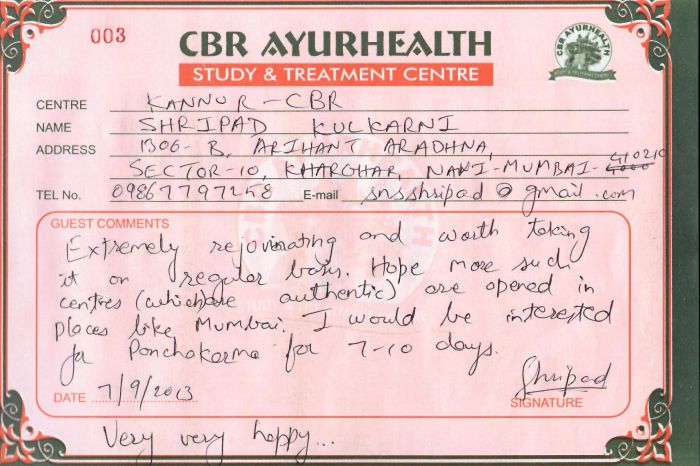 003
CBR AYURHEALTH
STUDY & TREATMENT CENTRE
CBR AYURHEALTH
CENTRE KANNUR-CBR
NAME SHRIPAD KULKARNI
ADDRESS 1306-B, ARIHANT ARADHNA,
SECTOR-10, KHARGHAR, NAVI-MUMBAI- 410210
TEL No. 09867797258 E-mail snsshripad@gmail.com
GUEST COMMENTS
Extremely rejuvinating and worth taking
it on regular basis. Hope more such
centres (which are authentic) are opened in
places like Mumbai. I would be interested
for Panchakarma for 7-10 days.
DATE 7/9/2013
Shripad
SIGNATURE
Very very happy...